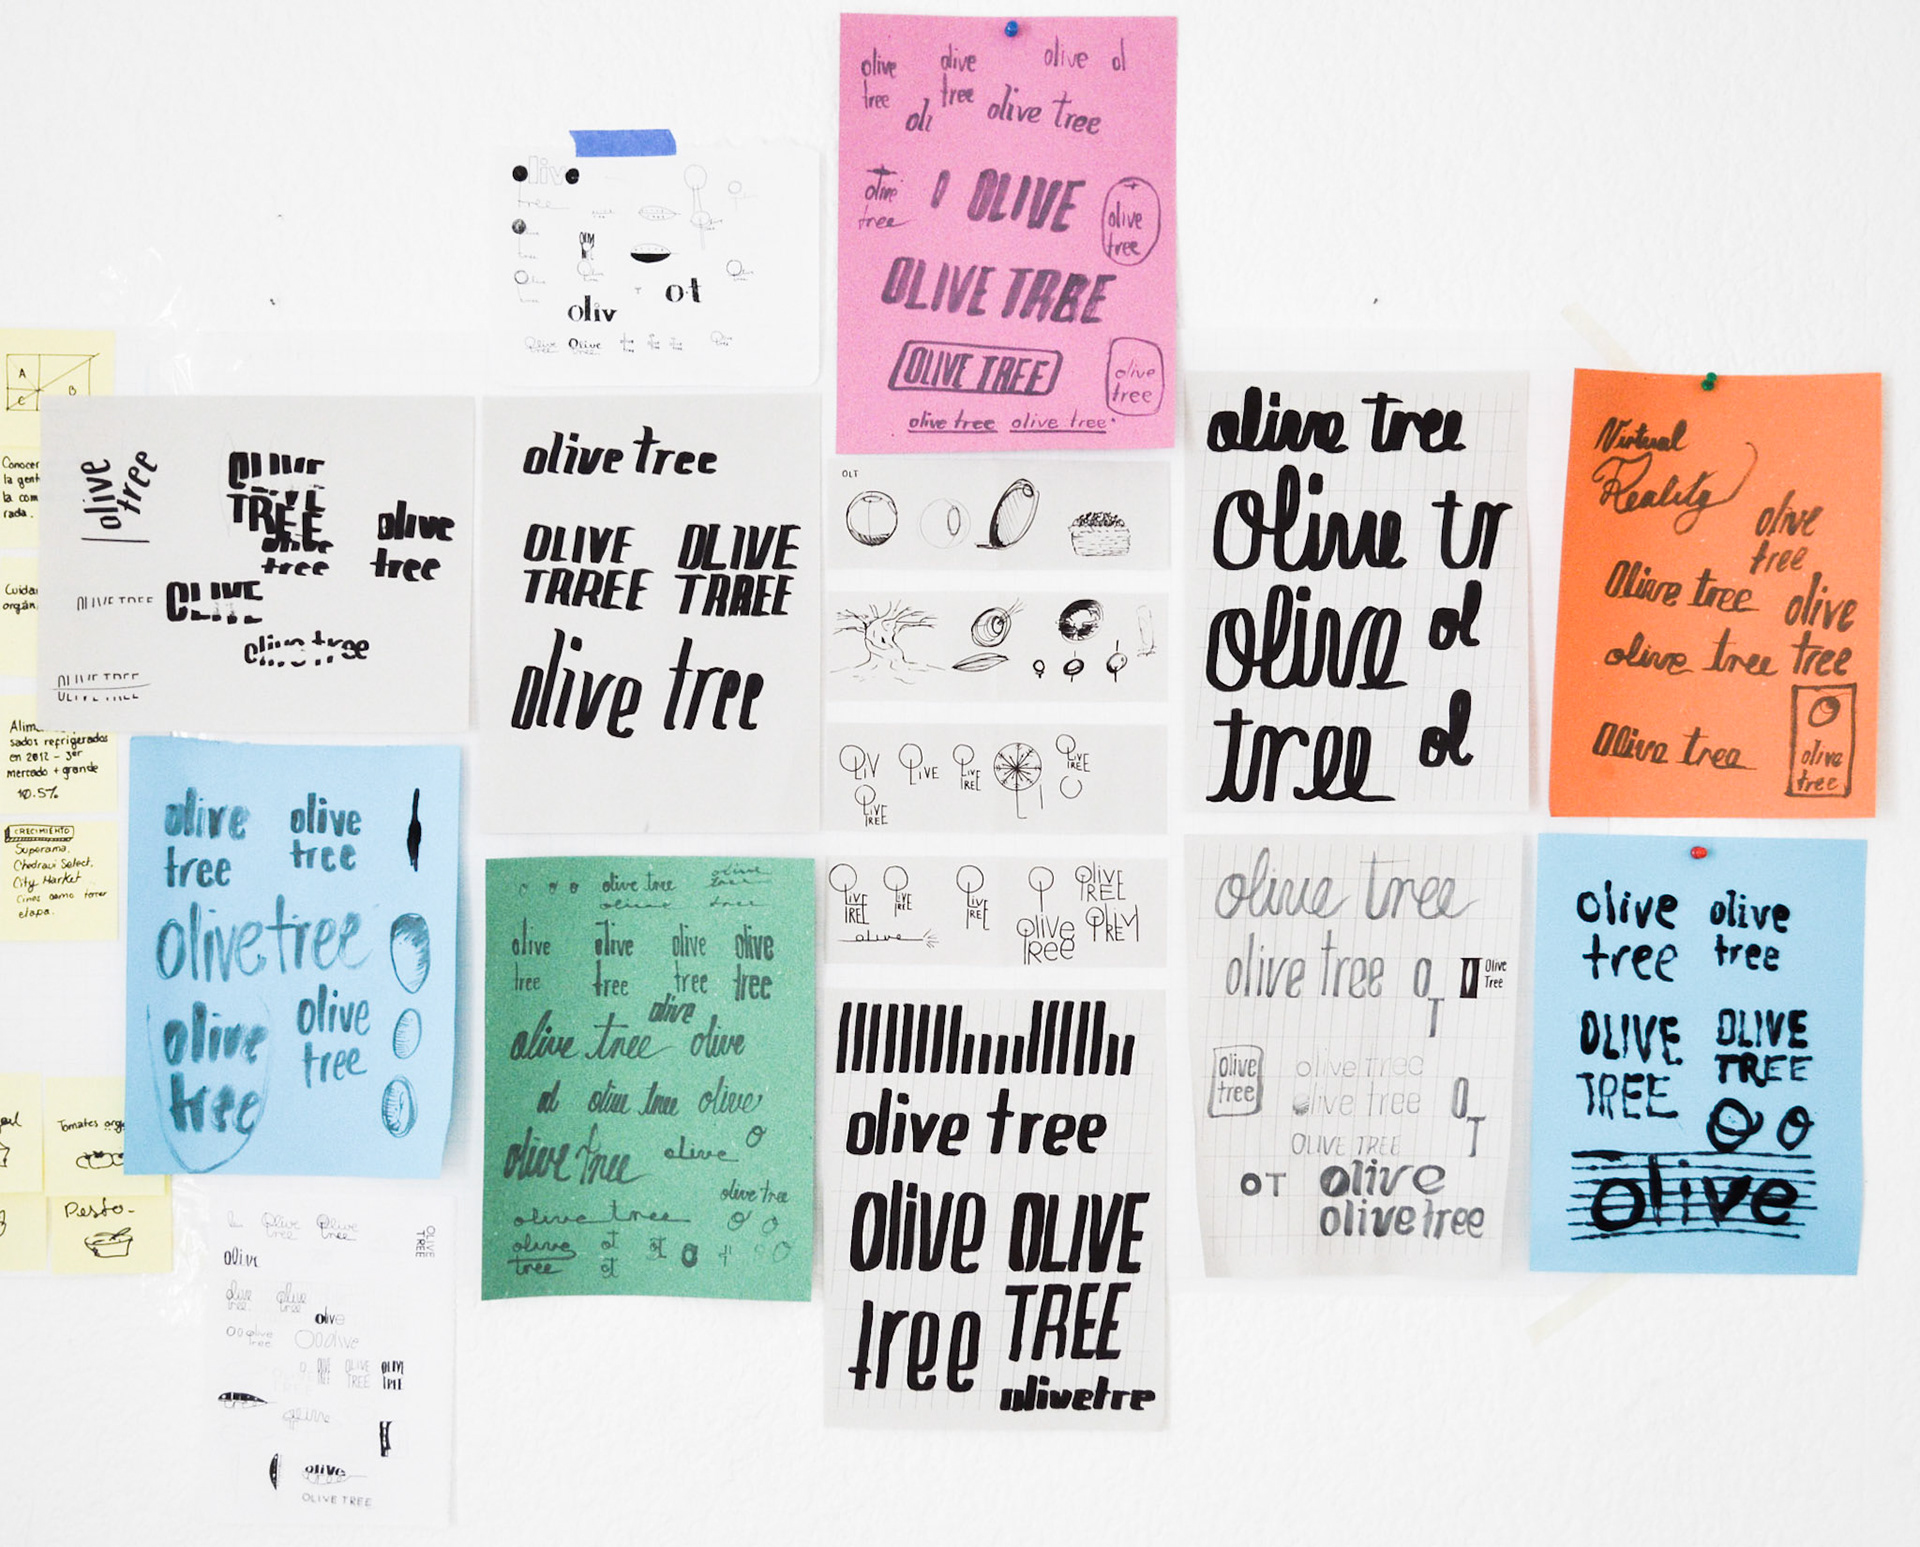 olive
tree
olive
tree
olive
ol
oli
olive tree
olive
tree
OLIVE
olive
tree
OLIVE TRBE
OLIVE TREE
olive
tree
olive tree
olive tree
olive
tree
oliv
ot
Olive
tree
A
B
C
Conocer
la gent
la com
rada.
Cuida
orgán.
Alim
sados refrigerados
en 2012 - 3er
mercado + grande
10.5%
CRECIMIENTO
Superama.
Chedraui Select.
City Market
Cines como tercer
etapa.
Tomates orgá
Pesto-
olive
tree
OLIVE
TREE
olive
tree
olive
tree
OLIVE TREE
OLIVE
olive tree
OLIVE TREE
olive tree
OLIVE
TRREE
OLIVE
TRREE
olive tree
OLT
OLIV
OLIVE
OLIVE
TREE
OLIVE
TREE
OLIVE
TREE
OLIVE
TREE
LIVE
TREE
LIVE
TREE
olive
olive
Tree
OLIVE
TREE
olive tree
Olive tr
olive
ol
tree
ol
Virtual
Reality
olive
tree
Olive tree
olive
tree
olive tree
Olive tree
olive
tree
olive
tree
olive
tree
olivetree
olive
tree
olive
tree
olive tree
olive
tree
olive
tree
olive
tree
olive
tree
olive
tree
olive
olive tree
olive
ol
olive tree
olive
olive tree
olive
olive tree
olive tree
olive
tree
ot
ot
ot
olive tree
olive
tree
OLIVE
TREE
olivetre
olive tree
olive tree
OT
Olive
Tree
olive
tree
olive tree
olive tree
OT
OLIVE TREE
OT
olive
olivetree
olive
tree
olive
tree
OLIVE
TREE
OLIVE
TREE
olive
Olive
tree
Olive
tree
OLIVE
TREE
olive
olive
tree
olive
tree
olive
olive
tree
olive
OLIVE
TREE
OLIVE
TREE
olive
OLIVE TREE